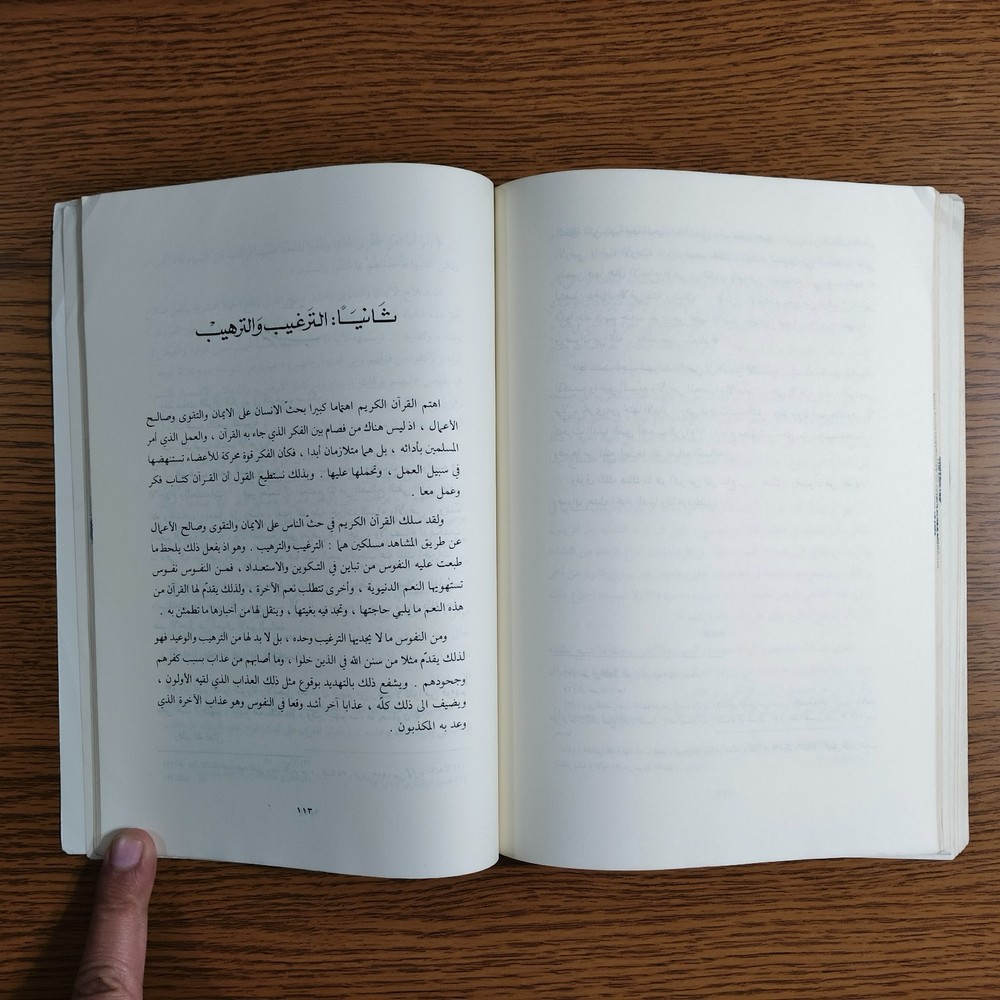 ثَانيَاً: التَرغيب وَالترهيبْ
اهتم القرآن الكريم اهتماما كبيرا بحثّ الانسان على الايمان والتقوى وصالح
الأعمال ، اذ ليس هناك من فصام بين الفكر الذي جاء به القرآن ، والعمل الذي أمر
المسلمين بأدائه ، بل هما متلازمان أبدا ، فكأن الفكر قوة محركة للأعضاء تستنهضها
في سبيل العمل ، وتحملها عليها . وبذلك نستطيع القول ان القرآن كتاب فكر
وعمل معا .
ولقد سلك القرآن الكريم في حثّ الناس على الايمان والتقوى وصالح الأعمال
عن طريق المشاهد مسلكين هما : الترغيب والترهيب . وهو اذ يفعل ذلك يلحظ ما
طبعت عليه النفوس من تباين في التكوين والاستعداد ، فمن النفوس نفوس
تستهويها النعم الدنيوية ، وأخرى تتطلب نعم الآخرة ، ولذلك يقدّم لها القرآن من
هذه النعم ما يلبي حاجتها ، وتجد فيه بغيتها ، وينقل لها من أخبارها ما تطمئن به .
ومن النفوس ما لا يجديها الترغيب وحده ، بل لا بد لها من الترهيب والوعيد فهو
لذلك يقدّم مثلا من سنن الله في الذين خلوا ، وما أصابهم من عذاب بسبب كفرهم
وجحودهم . ويشفع ذلك بالتهديد بوقوع مثل ذلك العذاب الذي لقيه الأولون ،
ويضيف الى ذلك كلّه ، عذابا آخر أشد وقعا في النفوس وهو عذاب الآخرة الذي
وعد به المكذبون .
١١٣